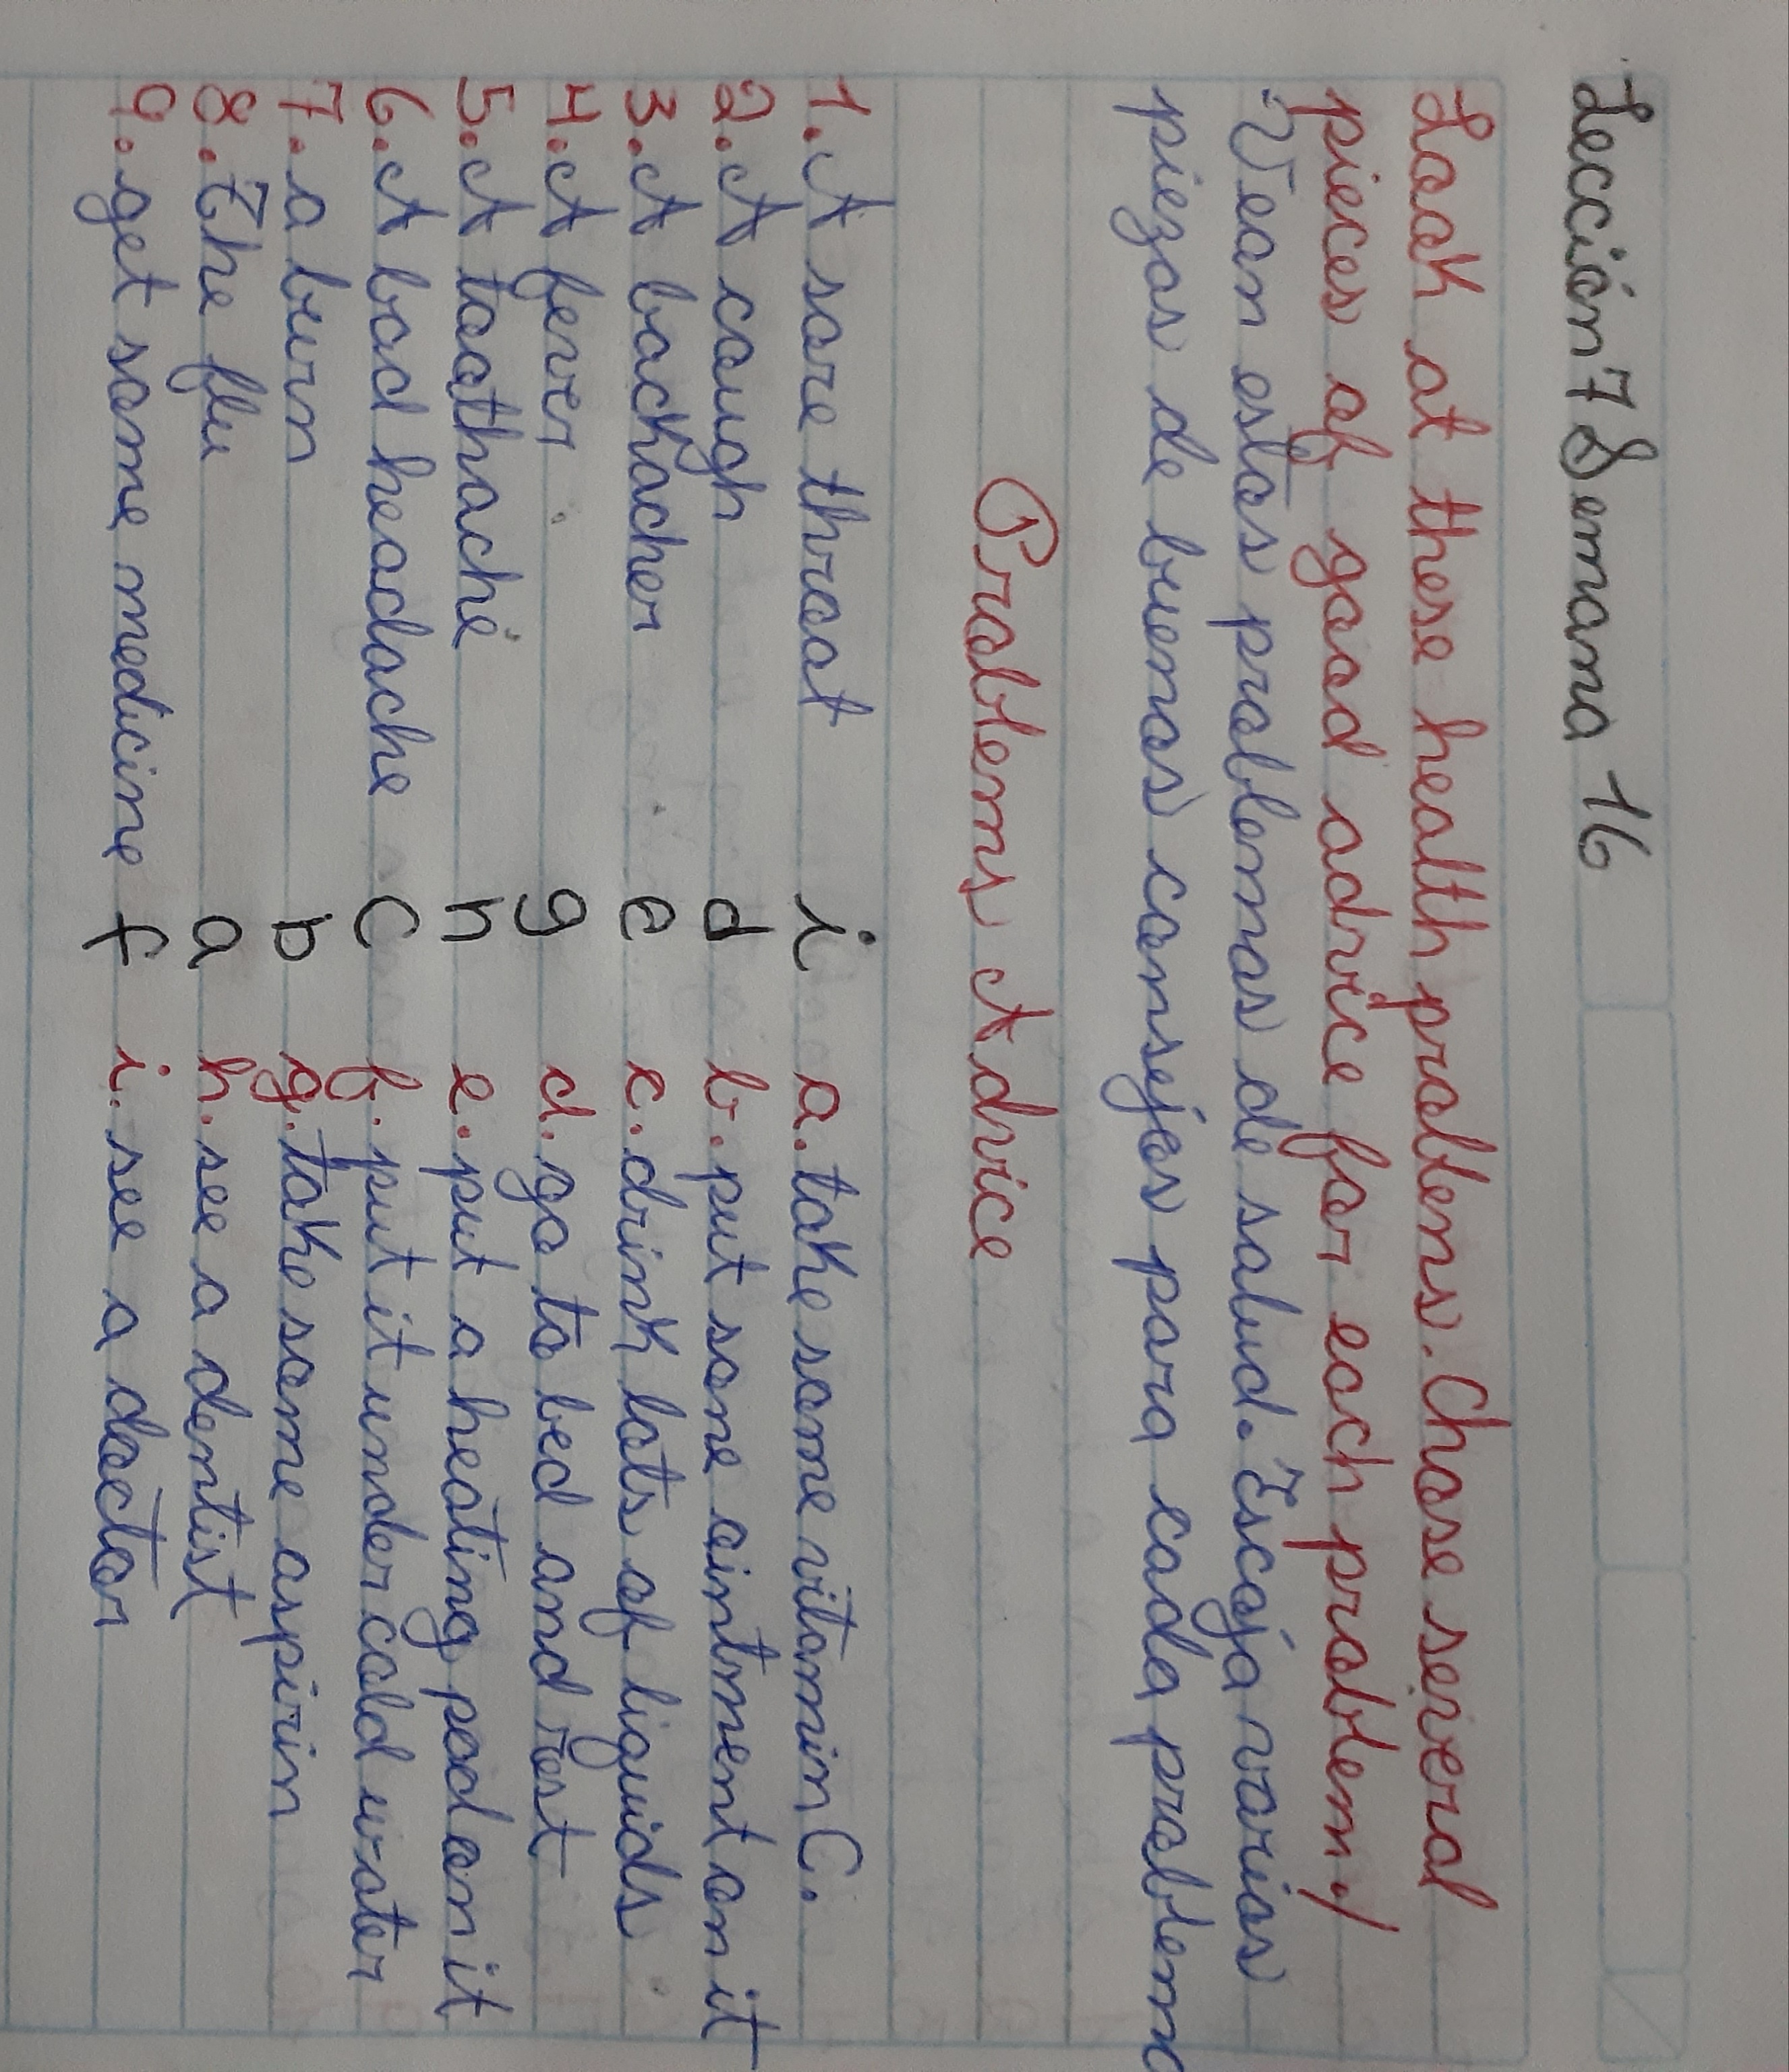 Lección 7 Semana 16
Look at these health problens. Chose several
pieces of good advice for each problem./
Vean estas problemas de salud. Escoja varias
piezas de buenos consejos para cada problema
Problems Advice
1. A sore throat i a. take some vitamin C.
2. A cough d b. put some ointment on it
3. A backacher e c. drink lots of liquids
4. A fever g d. go to bed and rest
5. A toothache h e. put a heating pad on it
6. A bad headache c f. put it under cold water
7. a burn b g. take some aspirin
8. the flu a h. see a dentist
9. get some medicine f i. see a doctor